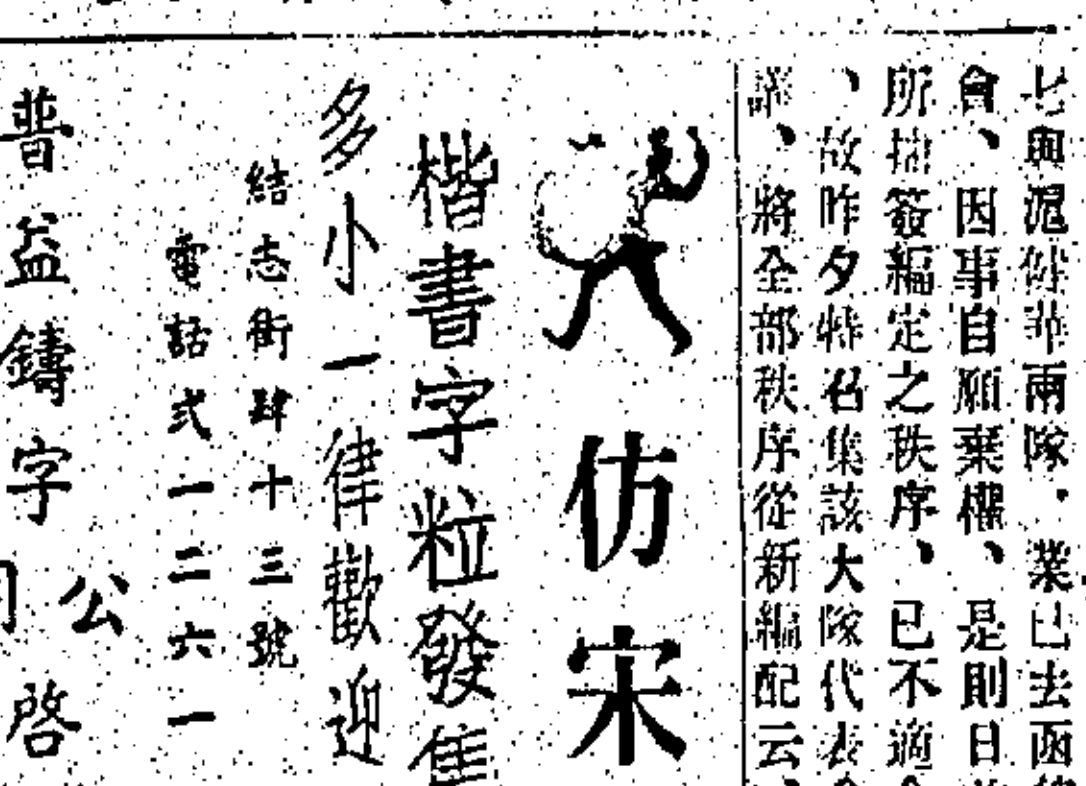 七與滬健華兩隊．業已去函
會、因事自願棄權、是則日
所抽簽編定之秩序、已不適
、故昨夕特名集該大隊代表
議、將全部秩序從新編配云、
仿宋
楷書字粒發售
多小一律歡迎
結志街肆十三號
電話弍一二六一
普益鑄字
公司
啓